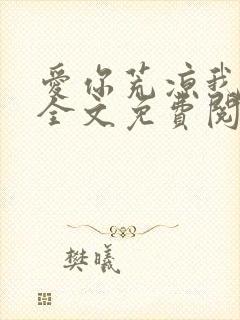 爱你荒凉我
全文免費閱
樊曦